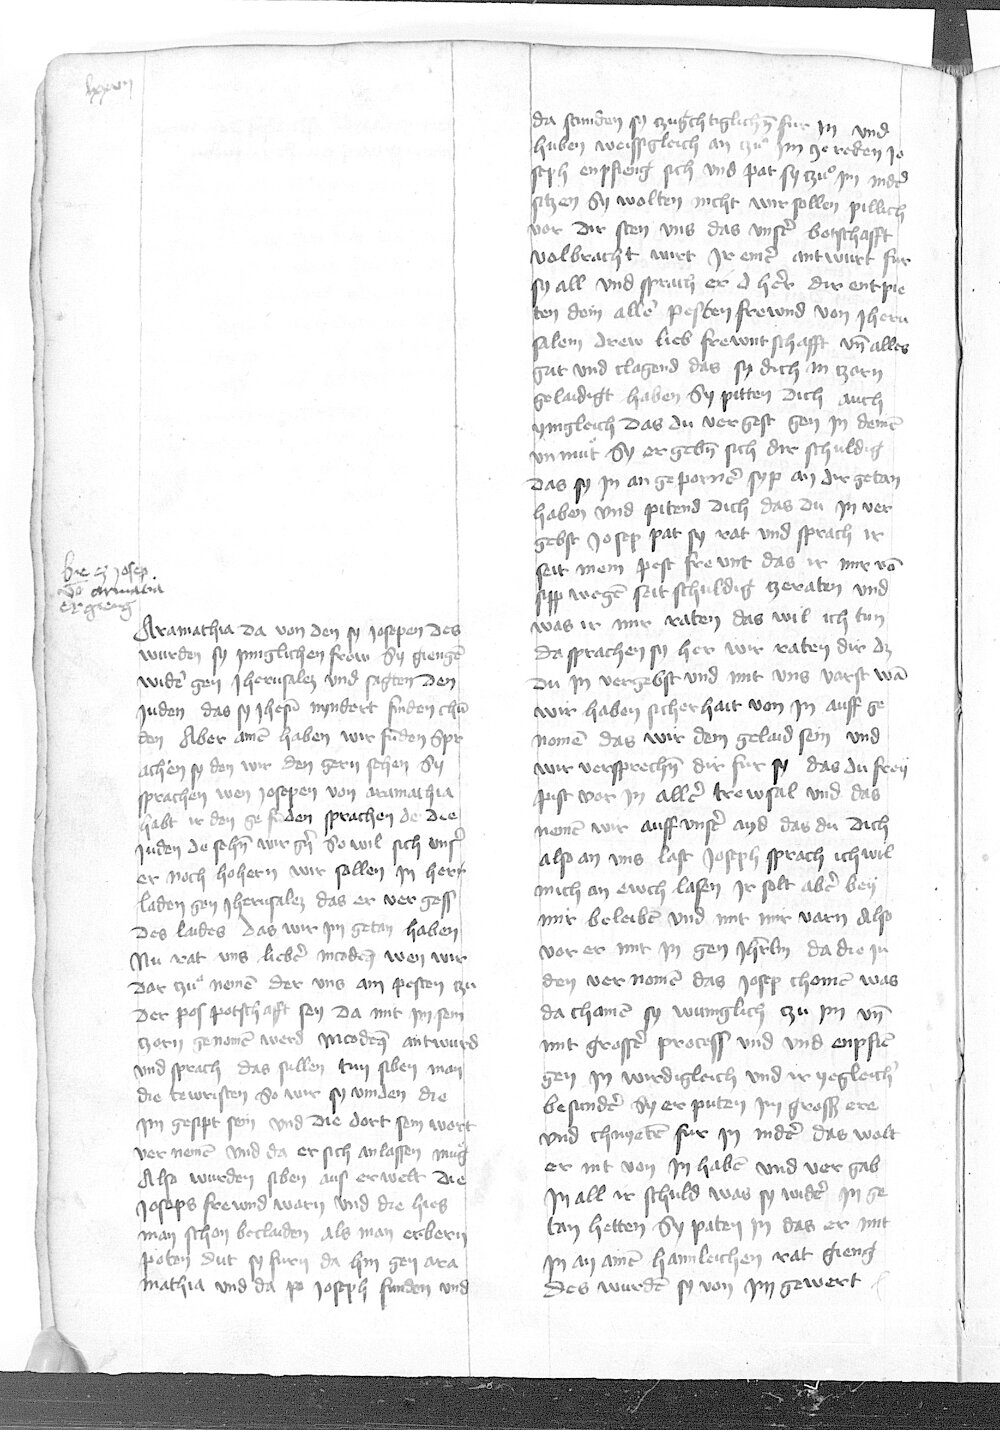 lxxxvij
hie cz Josep
vo armatia
er gieng
Aramathia da von den sy Josepen des
wurden sy ynniglichen frow Sy giengē
widˀ gen Jherusalez und sagten den
Juden das sy Jhesū nyndert finden chū
den Aber ainē haben wir fūden Spr
achen sy den wir den gern sehen Sy
sprachen wen Josepen von aramathia
habt ir den gefūden sprachen de die
Juden de sehn̄ wir gn̄ So wil sich unsˀ
er noch hohern wir sollen in herr
laden gen Jherusalez das er vergess
des laides das wir im getan haben
Nu rat uns liebˀ nicodeˀ wen wir
dar czuͦ nemē der uns am pesten czu
der pos potschafft sey da mit im sein
czorn genomē werd Nicodeˀ antwurd
und sprach das sullen tun siben man
die tewristen So wir sy vinden die
im gesipt sein und die dort sein wort
vernemē und da er sich anlassen mug
Also wurden siben aus erwelt die
Josephs frewnd warn und die hies
man schon beclaiden als man erbern
poten dut sy furn da hin gen ara
mathia und da sy Joseph funden und
da stunden sy czuchtiglichn̄ fur in und
huben weissgleich an czuͦ im ze reden Jo
seph enpfieng sich und pat sy czuͦ im nidˀ
siczen Sy wolten nicht wir sollen pillich
vor dir sten uns das unsˀ botschafft
volbracht wirt Ir ainˀ antwurt fur
sy all und sprach er O herˀ dir entpie
ten dein allˀ pesten frewnd von Jheru
salem drew lieb frewntschafft un̄ alles
gut und clagend das sy dich in czorn
gelaidigt haben Sy pitten dich auch
yngleich das du vergest gen in deinē
unmuͦt Sy ergebn̄ sich dir schuldig
das sy in angepornˀ syp an dir getan
haben und pitend dich das du in ver
gebst Josep pat sy rat und sprach ir
seit mein pest frewnt das ir mir vō
sipp wegē seit schuldig zeraten und
was ir mir raten das wil ich tun
da sprachen sy her wir raten dir dz
du in vergebst und mit uns varst wā
wir haben sicherhait von in auff ge
nomē das wir dem gelaid sein und
wir versprechn̄ dir fur sy das du frey
pist vor in allˀ trewsal und das
nemē wir auff unsˀ ayd das du dich
also an uns last Joseph sprach ich wil
mich an ewch lasen Ir solt abˀ bey
mir beleibē und mit mir varn Also
vor er mit in gen Jhrlm da die Ju
den vernomē das Josep chomē was
da chamē sy wuniglich czu im un̄
mit grossˀ process und und enpfie
gen in wirdigleich und ir yegleichˀ
besundˀ Sy erputen im gross ere
und chnyetē fur in nidˀ das wolt
er nit von in habē und vergab
in all ir schuld was sy widˀ in ge
tan hetten Sy paten in das er mit
in an ainē hainleichen rat gieng
des wurdē sy von im gewert